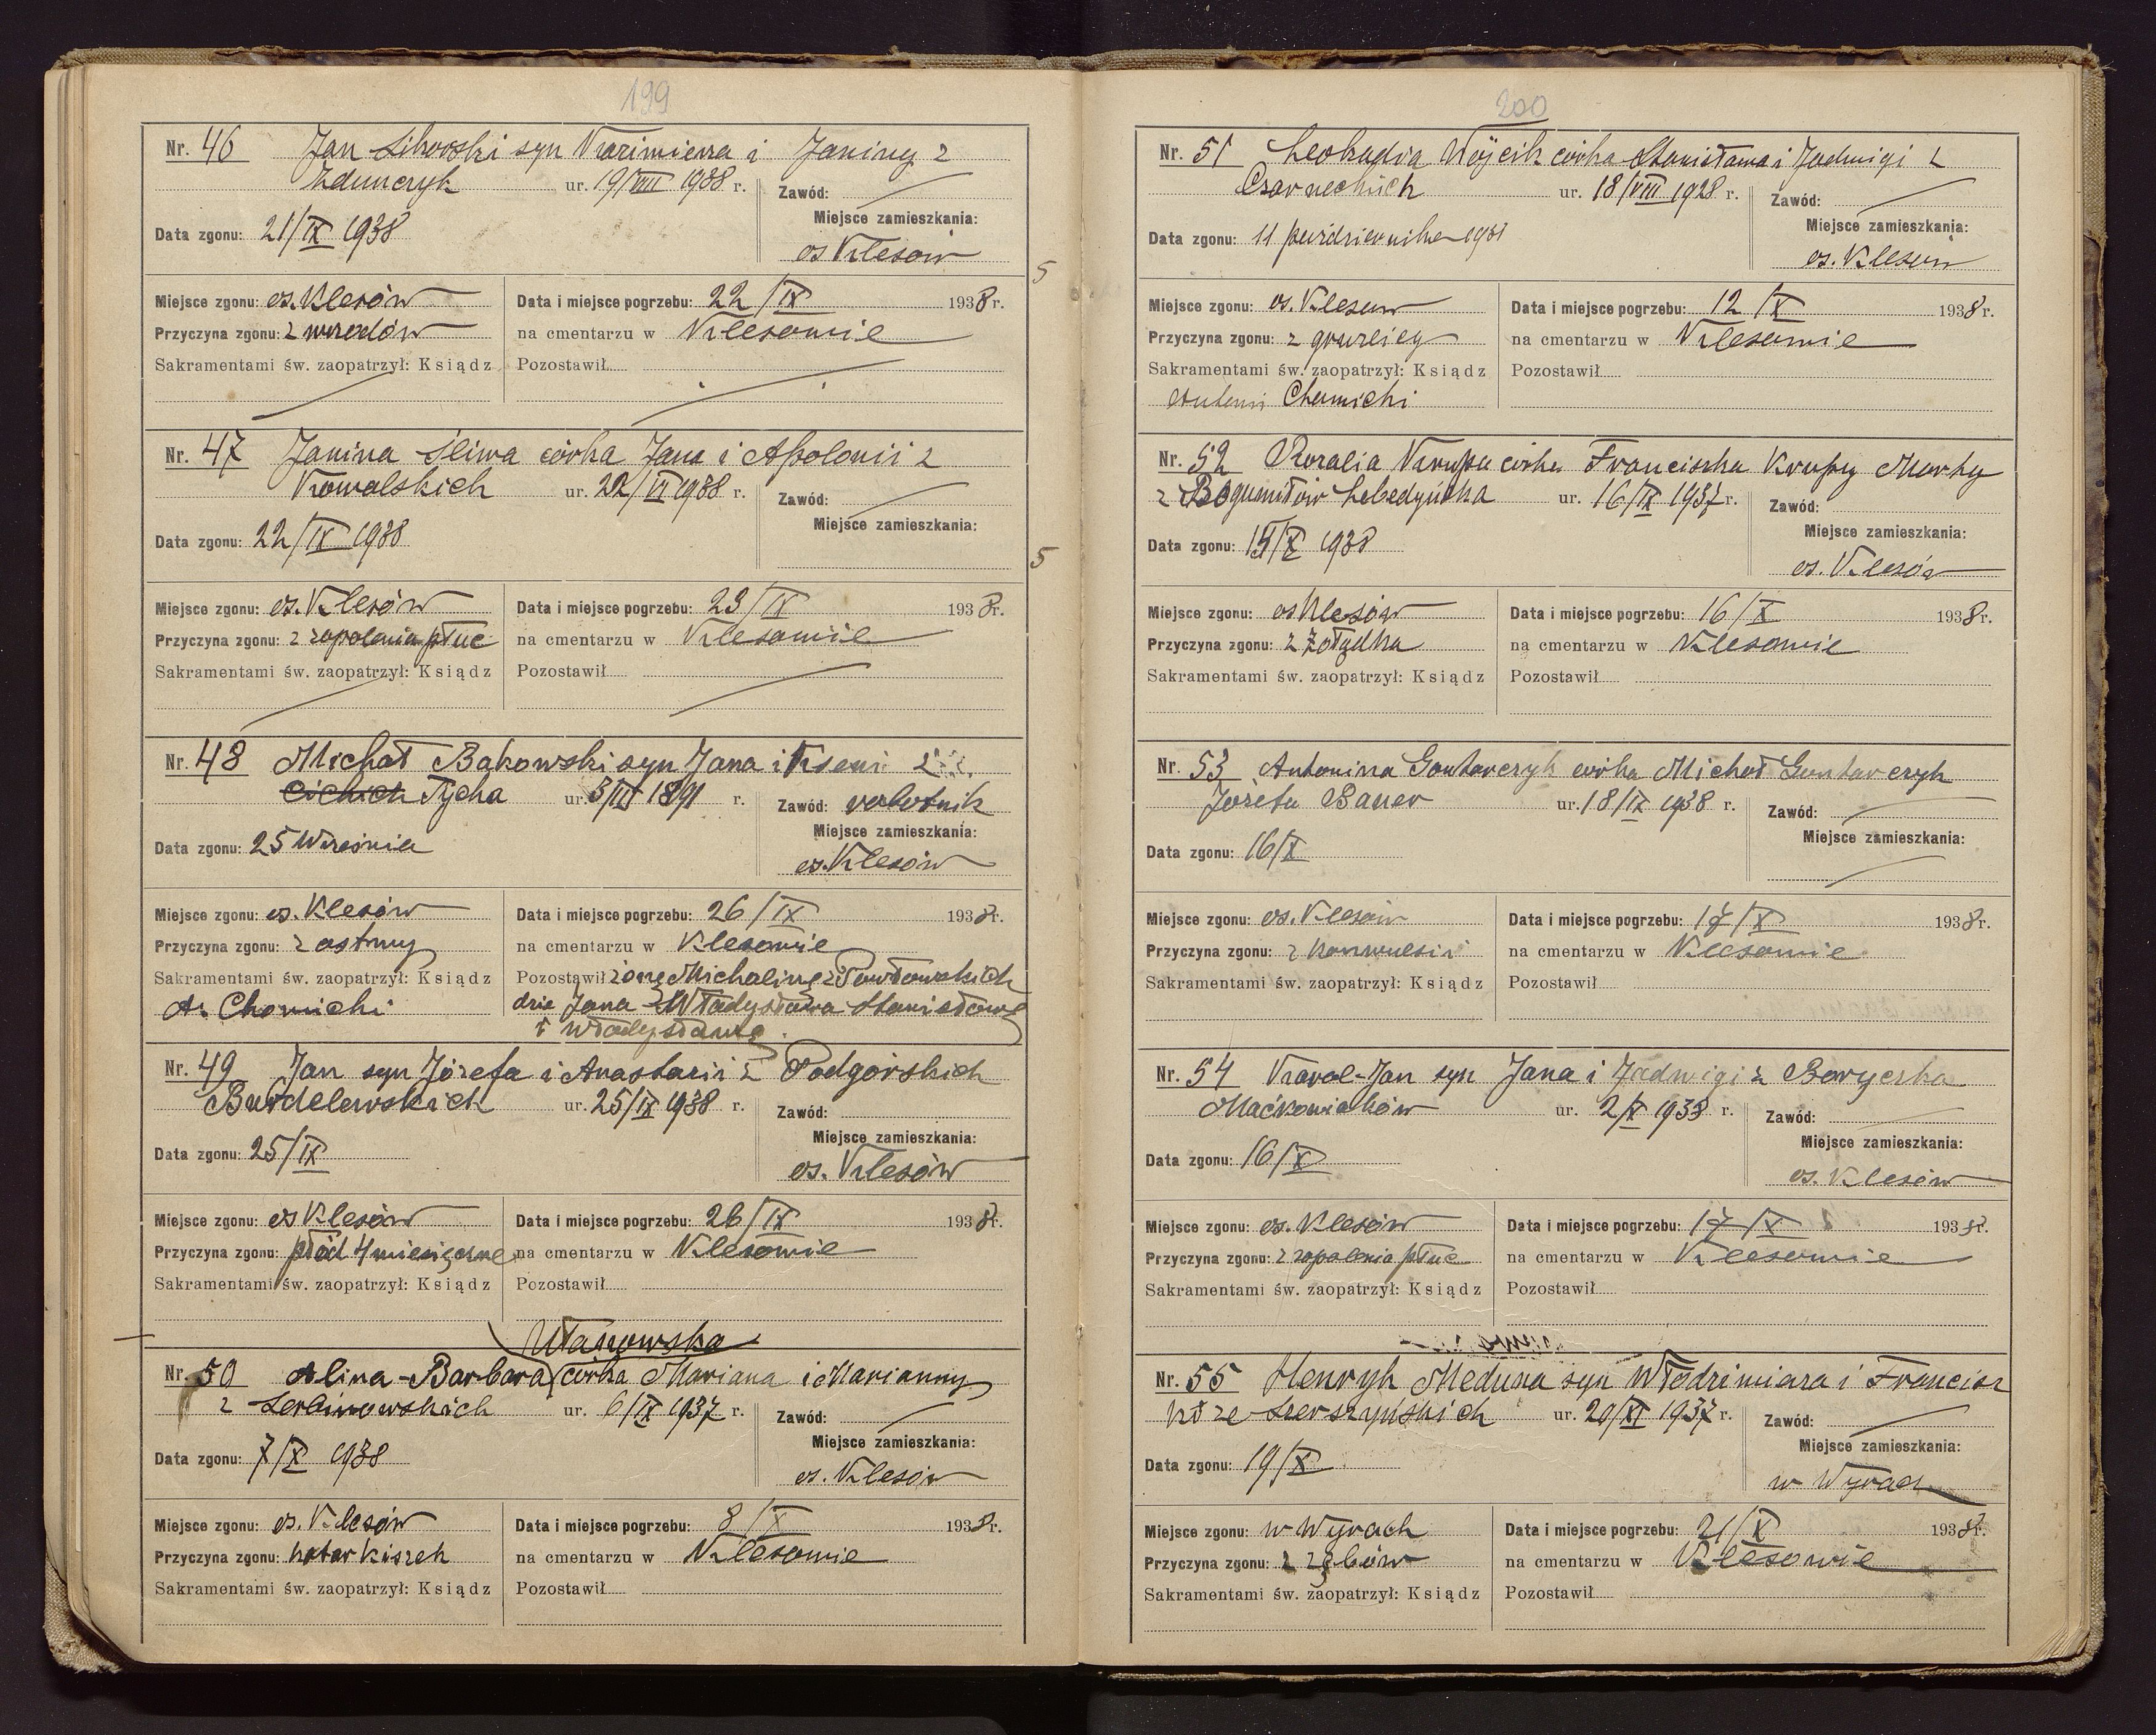 199
Nr. 46 Jan Sikorski syn Kazimierza i Janiny z
Zdunczyk ur. 19/VIII 1938 r. Zawód:
Miejsce zamieszkania:
Data zgonu: 21/IX 1938
os Klesów
5
Miejsce zgonu: os. Klesów Data i miejsce pogrzebu: 22/IX 1938 r.
Przyczyna zgonu: z wrzodów na cmentarzu w Klesowie
Sakramentami św. zaopatrzył: Ksiądz Pozostawił
Nr. 47 Janina Śliwa córka Jana i Apolonii z
Kowalskich ur. 22/VI 1938 r. Zawód:
Miejsce zamieszkania:
Data zgonu: 22/IX 1938
5
Miejsce zgonu: os. Klesów Data i miejsce pogrzebu: 23/IX 1938 r.
Przyczyna zgonu: z zapalenia płuc na cmentarzu w Klesowie
Sakramentami św. zaopatrzył: Ksiądz Pozostawił
Nr. 48 Michał Bąkowski syn Jana i Kseni z
Cichich Tycha ur. 3/III 1891 r. Zawód: robotnik
Miejsce zamieszkania:
Data zgonu: 25 Września
os. Klesów
Miejsce zgonu: os. Klesów Data i miejsce pogrzebu: 26/IX 1938 r.
Przyczyna zgonu: z astmy na cmentarzu w Klesowie
Sakramentami św. zaopatrzył: Ksiądz Pozostawił żonę Michalinę z Pawłowskich
A. Chomicki dzie Jana Władysława Stanisławę
i Władysławę
Nr. 49 Jan syn Józefa i Anastazii z Podgórskich
Burdelewskich ur. 25/IX 1938 r. Zawód:
Miejsce zamieszkania:
Data zgonu: 25/IX
os. Klesów
Miejsce zgonu: os Klesów Data i miejsce pogrzebu: 26/IX 1938 r.
Przyczyna zgonu: płód 4 miesięczne na cmentarzu w Klesowie
Sakramentami św. zaopatrzył: Ksiądz Pozostawił
Ułanowska
Nr. 50 Alina-Barbara córka Mariana i Marianny
z Serbinowskich ur. 6/IX 1937 r. Zawód:
Miejsce zamieszkania:
Data zgonu: 7/X 1938
os. Klesów
Miejsce zgonu: os. Klesów Data i miejsce pogrzebu: 8/X 1938 r.
Przyczyna zgonu: katar kiszek na cmentarzu w Klesowie
Sakramentami św. zaopatrzył: Ksiądz Pozostawił
200
Nr. 51 Leokadia Wójcik córka Stanisława i Jadwigi z
Czarneckich ur. 18/VIII 1928 r. Zawód:
Miejsce zamieszkania:
Data zgonu: 11 października
os. Klesów
Miejsce zgonu: os. Klesów Data i miejsce pogrzebu: 12/X 1938 r.
Przyczyna zgonu: z gruzlicy na cmentarzu w Klesowie
Sakramentami św. zaopatrzył: Ksiądz Pozostawił
Antoni Chomicki
Nr. 52 Rozalia Krupa córka Franciszka Krupy Marky
z Bogumiłów Lebedyńska ur. 16/IX 1937 r. Zawód:
Miejsce zamieszkania:
Data zgonu: 15/X 1938
os. Klesów
Miejsce zgonu: os Klesów Data i miejsce pogrzebu: 16/X 1938 r.
Przyczyna zgonu: z żołądka na cmentarzu w Klesowie
Sakramentami św. zaopatrzył: Ksiądz Pozostawił
Nr. 53 Antonina Gontarczyk córka Michał Gontarczyk
Józefa Bauer ur. 18/IX 1938 r. Zawód:
Miejsce zamieszkania:
Data zgonu: 16/X
Miejsce zgonu: os. Klesów Data i miejsce pogrzebu: 17/X 1938 r.
Przyczyna zgonu: z konwulsii na cmentarzu w Klesowie
Sakramentami św. zaopatrzył: Ksiądz Pozostawił
Nr. 54 Karol-Jan syn Jana i Jadwigi z Boryczka
Maćkowiaków ur. 2/X 1938 r. Zawód:
Miejsce zamieszkania:
Data zgonu: 16/X
os. Klesów
Miejsce zgonu: os. Klesów Data i miejsce pogrzebu: 17/X 1938 r.
Przyczyna zgonu: z zapalenia płuc na cmentarzu w Klesowie
Sakramentami św. zaopatrzył: Ksiądz Pozostawił
Nr. 55 Henryk Meduza syn Włodzimiara i Francisz
ki ze Szerszyńskich ur. 20/XI 1937 r. Zawód:
Miejsce zamieszkania:
Data zgonu: 19/X
w Wyrach
Miejsce zgonu: w Wyrach Data i miejsce pogrzebu: 21/X 1938 r.
Przyczyna zgonu: z zębów na cmentarzu w Klesowie
Sakramentami św. zaopatrzył: Ksiądz Pozostawił